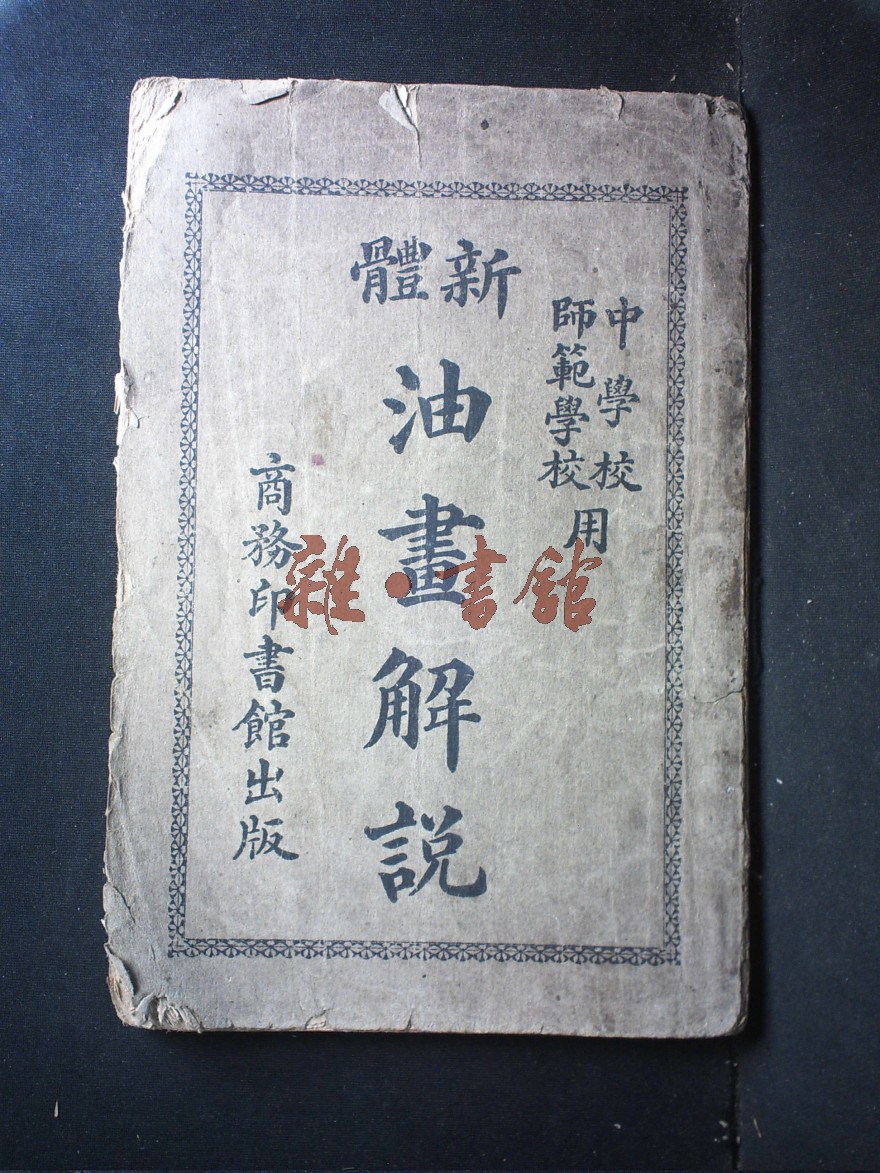 中學校
師範學校
用
新體
油畫解説
商務印書館出版
雜·書館